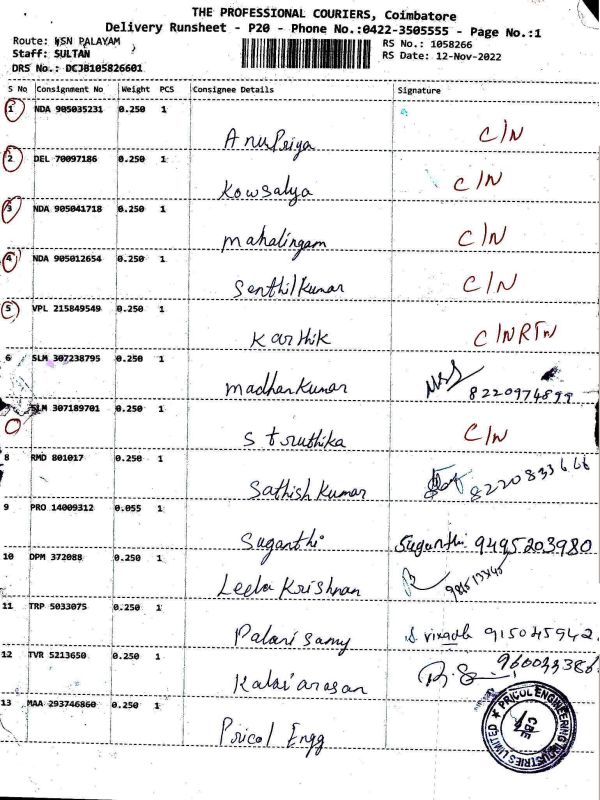 THE PROFESSIONAL COURIERS, Coimbatore
Delivery Runsheet - P20 - Phone No.:0422-3505555 - Page No.:1
Route: NSN PALAYAM
Staff: SULTAN
DRS No.: DCJB105826601
RS No.: 1058266
RS Date: 12-Nov-2022
S No Consignment No Weight PCS Consignee Details Signature
1 NDA 905035231 0.250 1
AnuPriya C/N
2 DEL 70097186 0.250 1
Kowsalya C/N
3 NDA 905041718 0.250 1
Mahalingam C/N
4 NDA 905012654 0.250 1
Senthilkumar C/N
5 VPL 215849549 0.250 1
Karthik C/NRTN
6 SLM 307238795 0.250 1
Madhankumar 8220974899
SLM 307189701 0.250 1
Sruthika C/N
8 RMD 801017 0.250 1
Sathish Kumar 8220833666
9 PRO 14009312 0.055 1
Suganthi Suganthi 9495203980
10 DPM 372088 0.250 1
Leela Krishnan
11 TRP 5033075 0.250 1
Palanisamy 915045942
12 TVR 5213650 0.250 1
Kalaiarasan 960033386
13 MAA 293746860 0.250 1
Pricol Engg
PRICOL ENGINEERING INDUSTRIES LIMITED
CBE